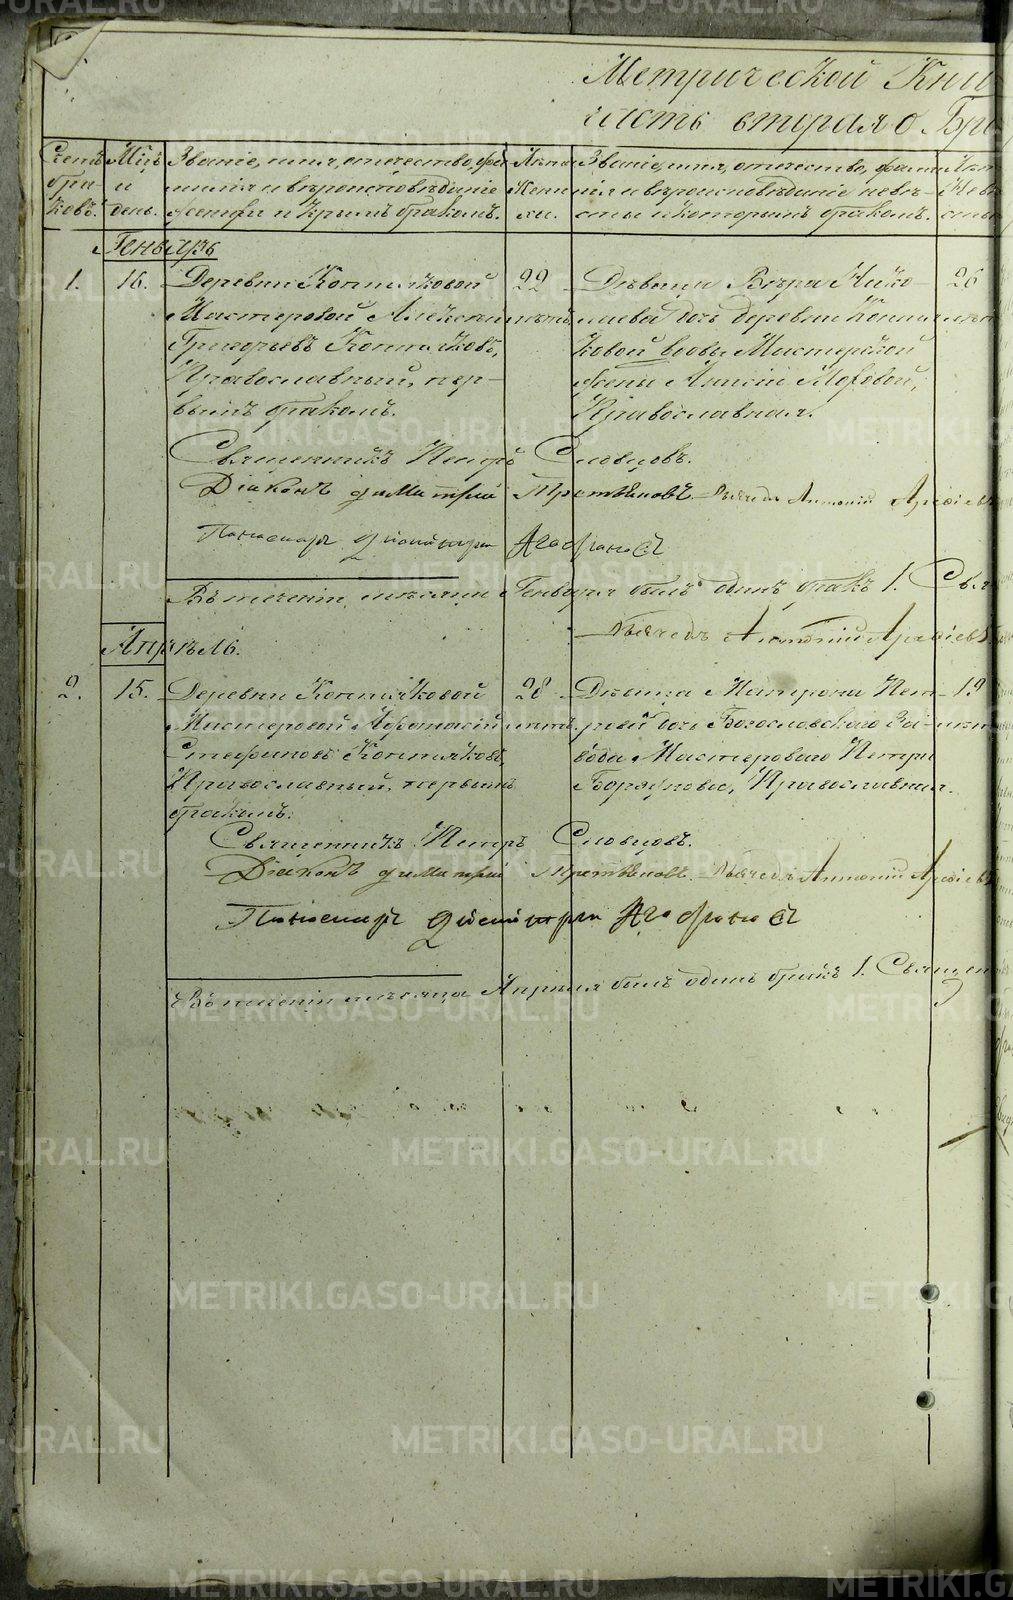 Метрической Кни
часть вторая о Бра
Счетъ бра- ковъ.
Мѣц. и день.
Званіе, имя, отчество, фа- милія и вѣроисповѣданіе жениха и коимъ бракомъ.
Лѣта Жени- ха.
Званіе, имя, отчество, фами- лія и вѣроисповѣданіе невѣ- сты и которымъ бракомъ.
Лѣт Невѣ сты
Генварь
1. 16.
Деревни Коптяковой
Мастеровой Алексѣй
Григорьевъ Коптяковъ,
Православный, пер-
вымъ бракомъ.
22
лѣтъ
Дѣвица Вѣра Нико-
лаева дочь деревни Коптя
ковой вдовы Мастерской
жены Анисіи
Православная.
26
лѣт
Священникъ Петръ Словцовъ.
Діаконъ Димитрій Третьяковъ. Дьячекъ Антоній Арефіевъ
Пономарь Агафоновъ
Въ теченіи мѣсяца Генваря былъ одинъ бракъ 1. Свя
Дьячекъ Антоній Арефіевъ
Апрѣль.
2. 15.
Деревни Коптяковой
Мастеровой Афонасій
Стефановъ Коптяковъ,
Православный, первымъ
бракомъ.
28
лѣтъ
Дѣвица Матрона Пет-
рова дочь Богословскаго За-
вода Мастероваго Петра
Православная.
19
лѣт
Священникъ Петръ Словцовъ.
Діаконъ Димитрій Третьяковъ. Дьячекъ Антоній Арефіевъ
Пономарь Агафоновъ
Въ теченіи мѣсяца Апрѣля былъ одинъ бракъ 1. Священ
METRIKI.GASO-URAL.RU